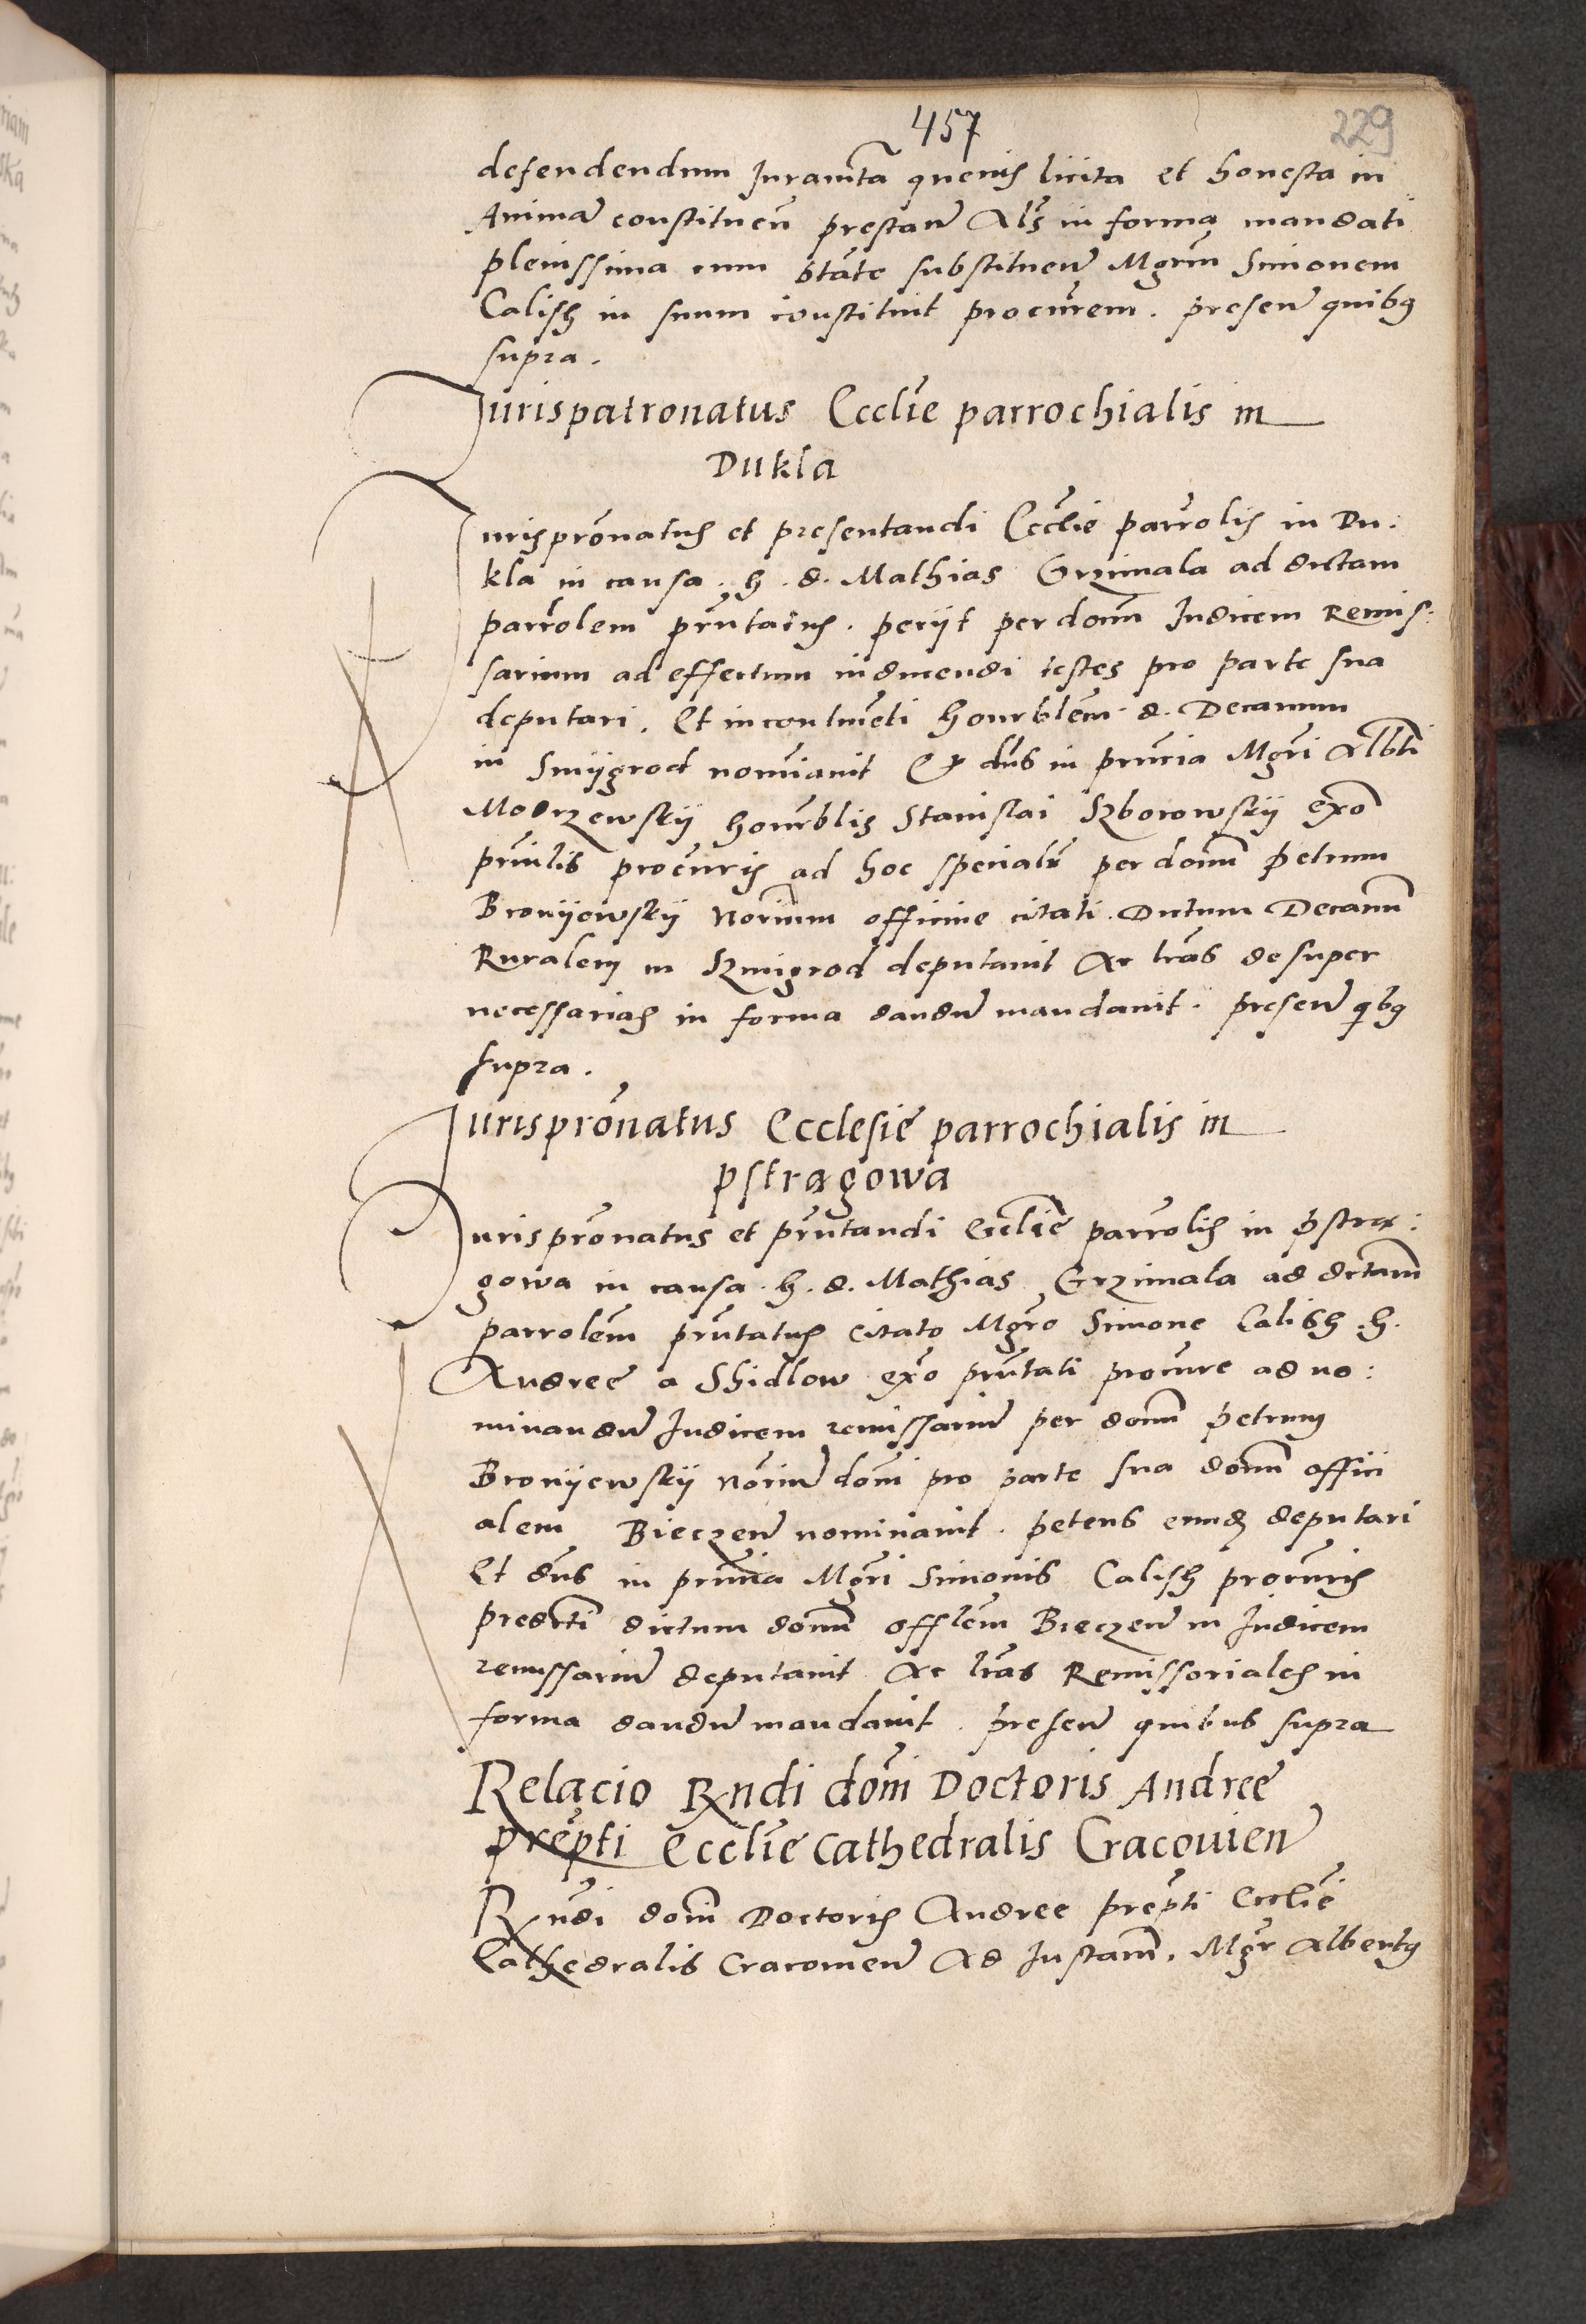 457
229
defendendum Juramta quevis licita et honesta in
Animã constituen̄ prestan̄ Als in forma mandati
plenissima cum ptāte substituen̄ Mgrm̄ Simonem
Calish in suum constituit procūrem . presen̄ quibus
supra .
Jurispatronatus Ecclie parrochialis in
Dukla
Jurisprōnatus et presentandi Ecclie parrolis in Du:
kla in causa . h . d . Mathias Grzimala ad dictam
parrolem prn̄tatus . pecijt per dom̄ Judicem Remis:
sarium ad effectum inducendi testes pro parte sua
deputari . Et incontin̄eti honrblem̄ d. Decanum
in Smijgrod nomīavit Et dn̄s in prn̄cia Mgr̄i Albti
Modrzewskij honrblis Stanislai Szborowskij exō
prn̄tlis procūris ad hoc specialr̄ per dom̄ Petrum
Bronijewskij Nor̄ium officine citati . Dictum Decanū
Ruralem in Szmigrod deputavit Ac lrās desuper
necessarias in forma dandū mandavit . presen̄ qibus
supra .
Jurisprōnatus Ecclesie parrochialis in
pstragowa
Jurisprōnatus et prn̄tandi Ecclie parrolis in pstra:
gowa in causa . h . d . Mathias Grzimala ad dictam
parrolem̄ prn̄tatus citato Mgr̄o Simone Calish . h .
Andree a Shidlow exō prn̄tati procūre ad no:
minandū Judicem remissariū per dom̄ petrum
Bronijewskij Nōriū dom̄i pro parte sua dom̄ offici
alem Bieczen̄ nominavit . petens eund deputari
Et dn̄s in prn̄cia Mgr̄i Simonis Calish procūris
predcti dictum dom̄ offlem̄ Bieczen̄ in Judicem
remissariū deputavit Ac lrās Remissoriales in
forma dandū mandavit . presen̄ quibus supra
Relacio Rndi dom̄i Doctoris Andree
prep̄ti Ecclie Cathedralis Cracovien̄
Rndi dom̄i Doctoris Andree prep̄ti Ecclie
Cathedralis Cracovien̄ Ad Instam̄ . Mgr̄ Albertus